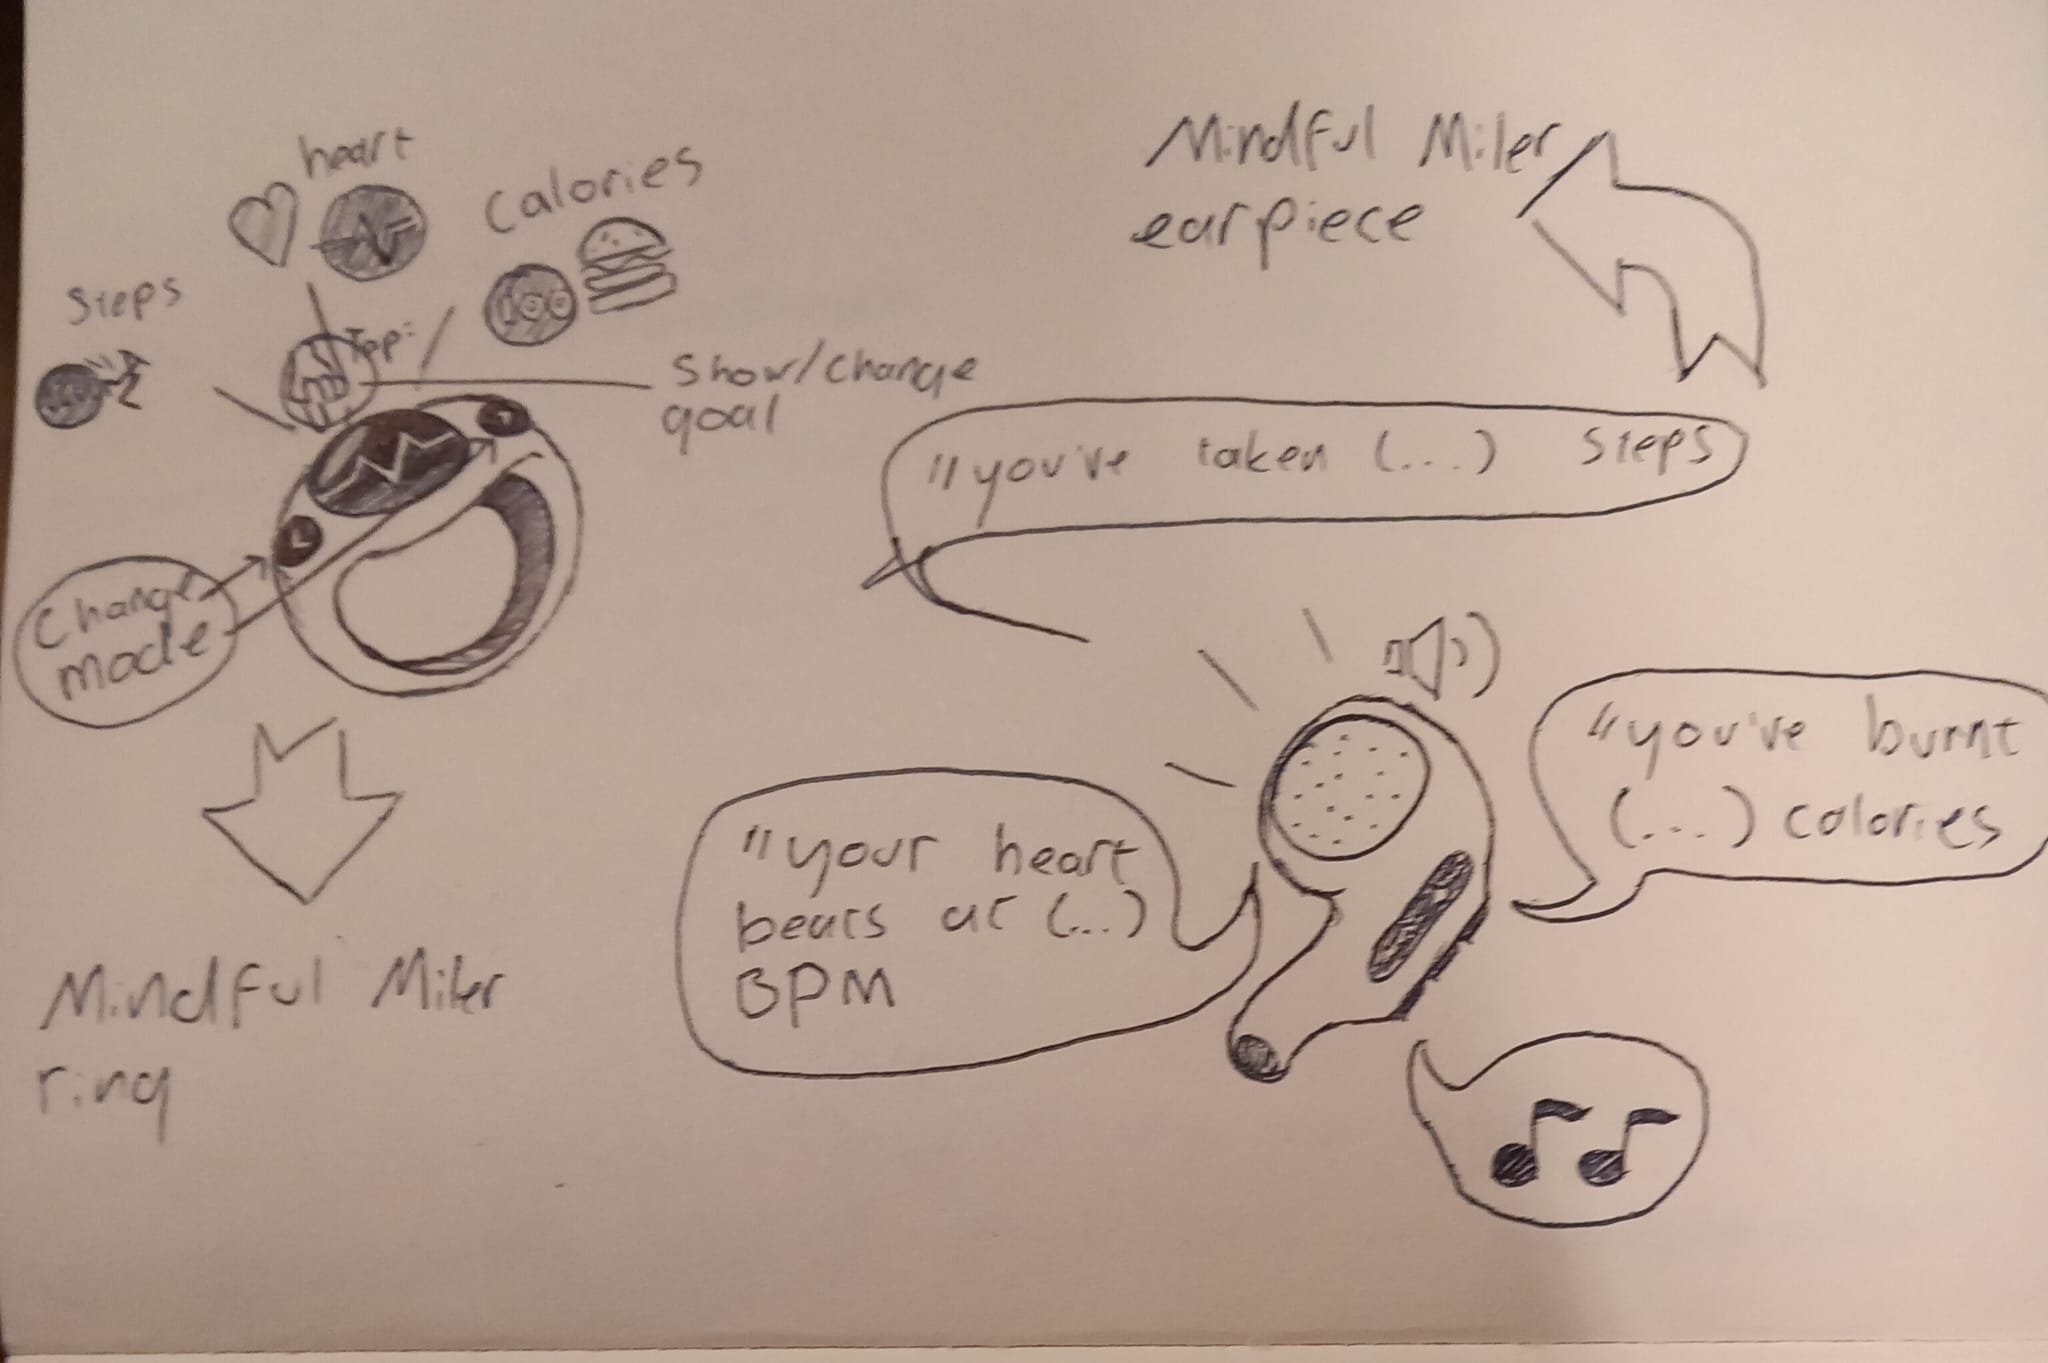 heart
Calories
100
Steps
Tap:
Show/change
goal
Change
mode
Mindful Miler
ring
Mindful Miler
earpiece
"you've taken (...) Steps
"your heart
beats at (...)
BPM
"you've burnt
(...) calories